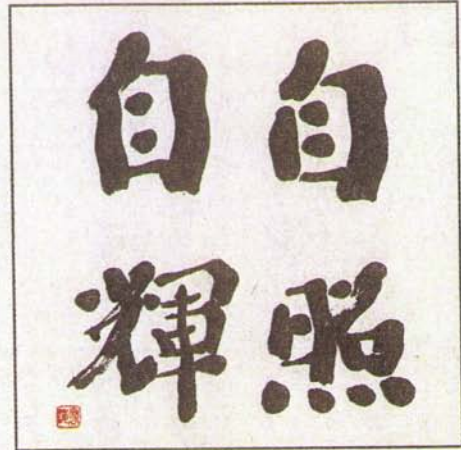 自照
自輝